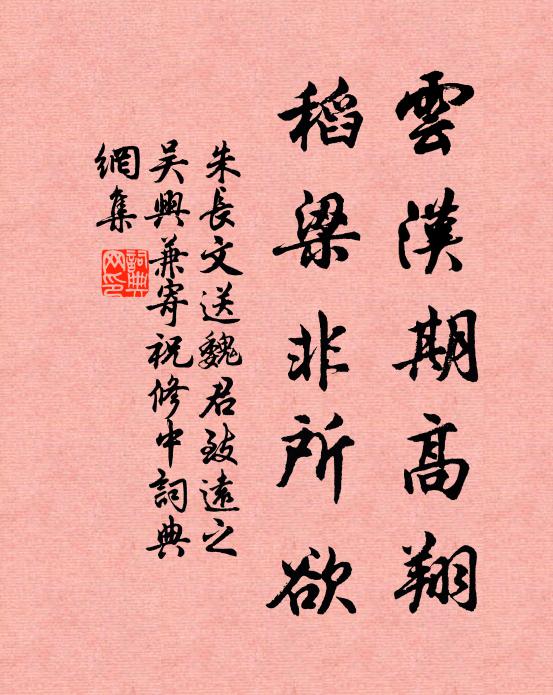 雲漢期高翔
稻粱非所欲
朱長文送魏君致遠之
吴興兼寄祝修中詞典
網集
詞典
网印